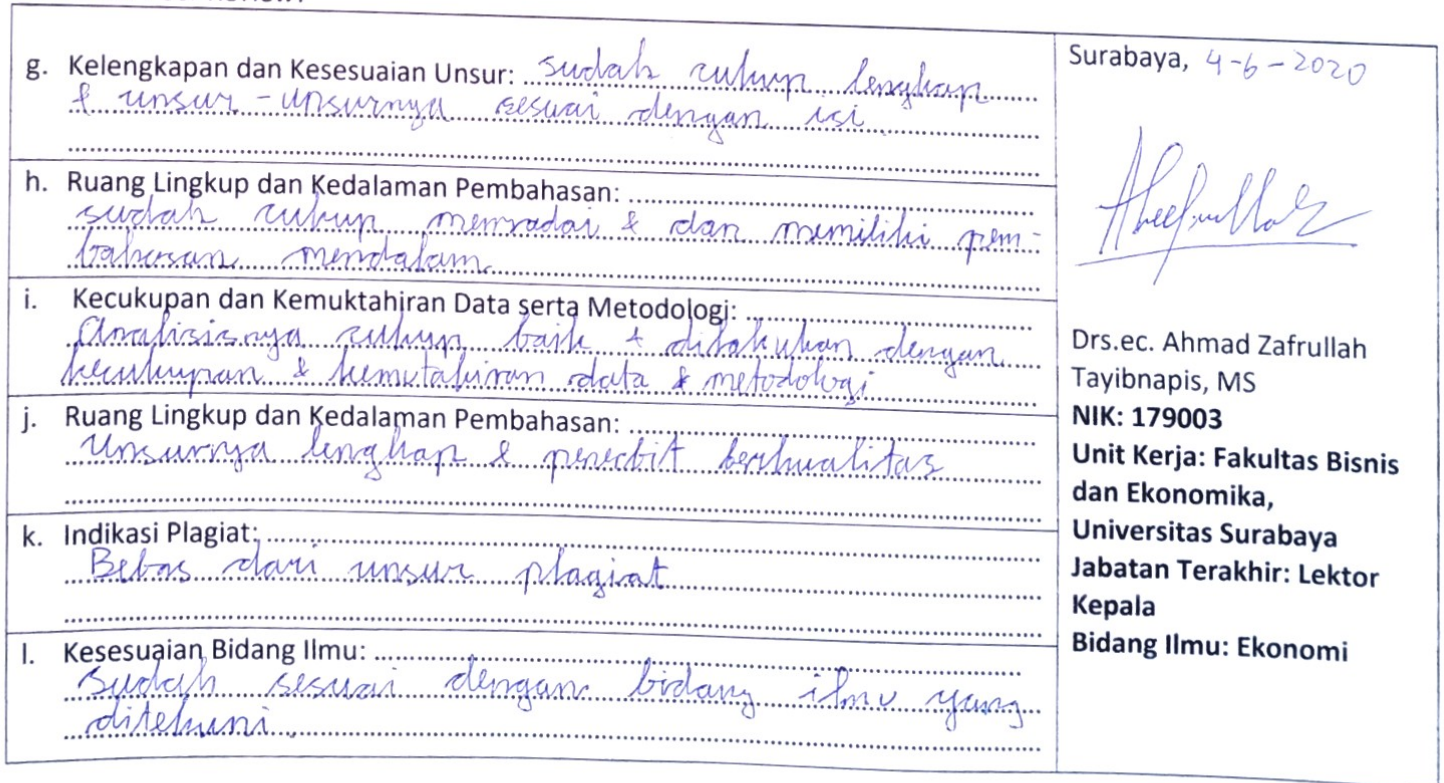 g. Kelengkapan dan Kesesuaian Unsur: sudah cukup lengkap
& unsur-unsurnya sesuai dengan isi
h. Ruang Lingkup dan Kedalaman Pembahasan:
sudah cukup memadai & dan memiliki pem-
bahasan mendalam
i. Kecukupan dan Kemuktahiran Data serta Metodologi:
Analisisnya cukup baik + dilakukan dengan
kecukupan & kemutahiran data & metodologi
j. Ruang Lingkup dan Kedalaman Pembahasan:
Unsurnya lengkap & penerbit berkualitas
k. Indikasi Plagiat:
Bebas dari unsur plagiat
l. Kesesuaian Bidang Ilmu:
Sudah sesuai dengan bidang ilmu yang
ditekuni
Surabaya, 4-6-2020
Drs.ec. Ahmad Zafrullah
Tayibnapis, MS
NIK: 179003
Unit Kerja: Fakultas Bisnis
dan Ekonomika,
Universitas Surabaya
Jabatan Terakhir: Lektor
Kepala
Bidang Ilmu: Ekonomi